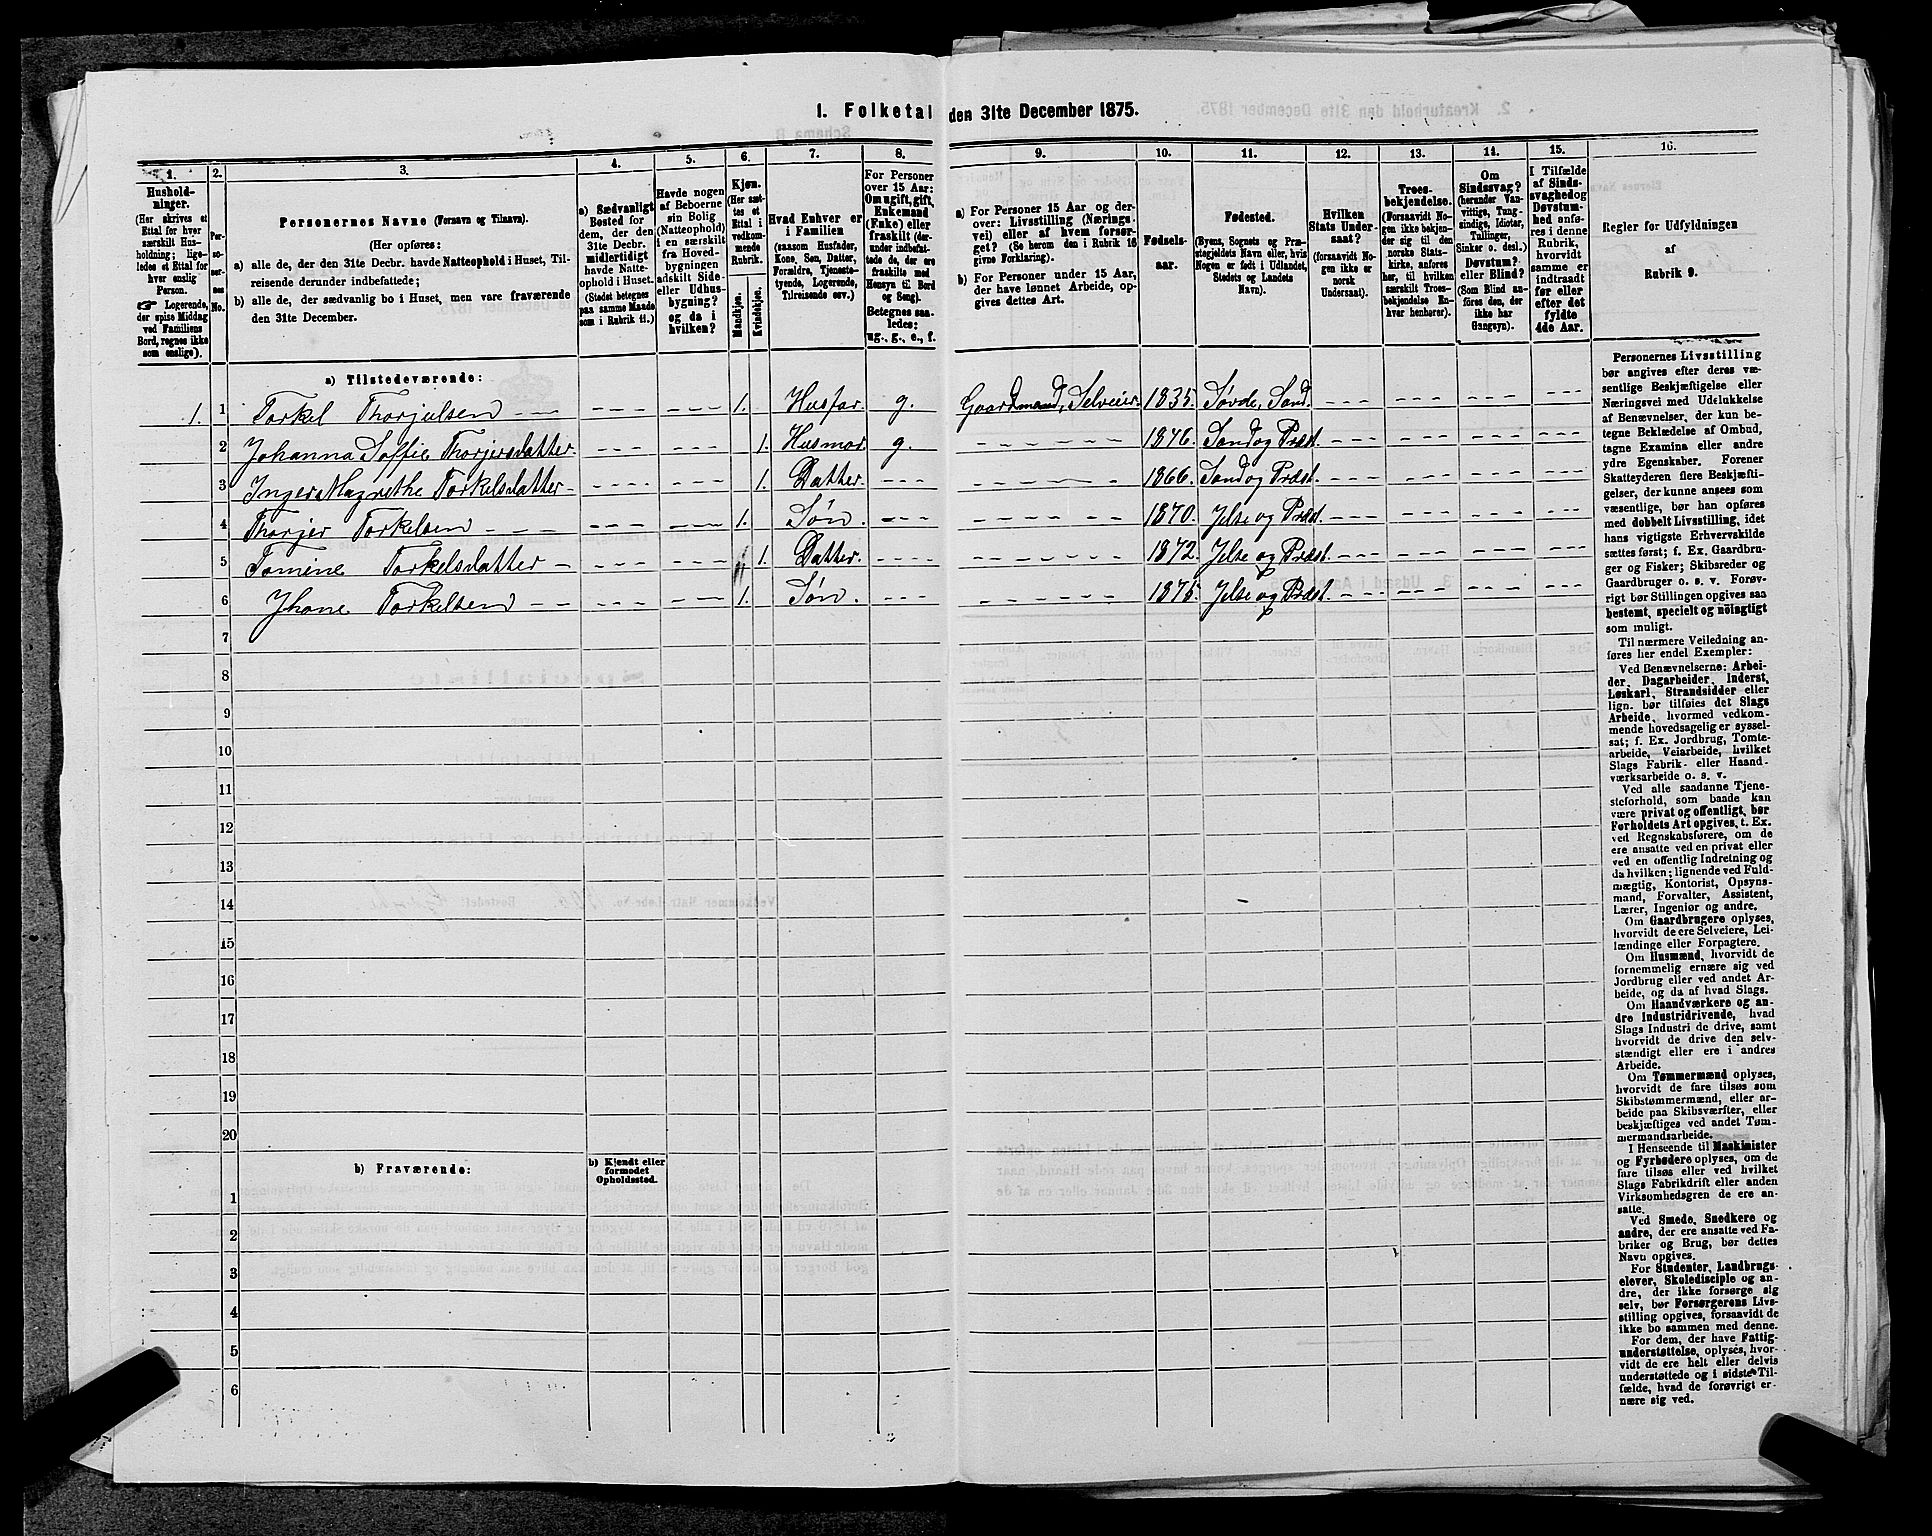 1. Folketal den 31te December 1875.
1. 2. 3. 4. 5. 6. 7. 8. 9. 10. 11. 12. 13. 14. 15. 16.
Hushold-
ninger.
(Her skrives et
Ettal for hver
særskilt Hus-
holdning; lige-
ledes et Ettal for
hver enslig
Person.
☞ Logerende,
der spise Middag
ved Familiens
Bord, regnes ikke
som enslige).
Per-
so-
ner-
nes
No.
Personernes Navne (Fornavn og Tilnavn).
(Her opføres:
a) alle de, der den 31te Decbr. havde Natteophold i Huset, Til-
reisende derunder indbefattede;
b) alle de, der sædvanlig bo i Huset, men vare fraværende
den 31te December.
a) Sædvanligt
Bosted for
dem, der den
31te Decbr.
midlertidigt
havde Natte-
ophold i Huset.
(Stedet betegnes
paa samme Maade
som i Rubrik 11.)
Havde nogen
af Beboerne
sin Bolig
(Natteophold)
i en særskilt
fra Hoved-
bygningen
adskilt Side-
eller Udhus-
bygning?
og da i
hvilken?
Kjøn.
(Her sæt-
tes et
Ettal i
vedkom-
mende
Rubrik.
Mandkjøn.
Kvindekjøn.
Hvad Enhver er
i Familien
(saasom Husfader,
Kone, Søn, Datter,
Forældre, Tjeneste-
tyende, Logerende,
Tilreisende osv.)
For Personer
over 15 Aar:
Om ugift, gift,
Enkemand
(Enke) eller
fraskilt (der-
under indbefat-
tede de, der ere
fraskilte med
Hensyn til Bord
og Seng).
Betegnes saa-
ledes:
ug., g., e., f.
a) For Personer 15 Aar og der-
over: Livsstilling (Nærings-
vei) eller af hvem forsør-
get? (Se herom den i Rubrik 16
givne Forklaring).
b) For Personer under 15 Aar,
der have lønnet Arbeide, op-
gives dettes Art.
Fødsels-
aar.
Fødested.
(Byens, Sognets og Præ-
stegjeldets Navn eller, hvis
Nogen er født i Udlandet,
Stedets og Landets
Navn).
Hvilken
Stats Under-
saat?
(forsaavidt No-
gen ikke er
norsk
Undersaat).
Troes-
bekjendelse.
(Forsaavidt No-
gen ikke bekjen-
der sig til den
norske Stats-
kirke, anføres
her, til hvilken
særskilt Troes-
bekjendelse En-
hver henhører).
Om
Sindssvag?
(herunder Van-
vittige, Tung-
sindige, Idioter,
Tullinger,
Sinker o. desl.)
Døvstum?
eller Blind?
(Som Blind an-
føres den, der
ikke har
Gangsyn).
I Tilfælde
af Sinds-
svaghed og
Døvstum-
hed anfø-
res i denne
Rubrik,
hvorvidt
samme er
indtraadt
før eller
efter det
fyldte
4de Aar.
Regler for Udfyldningen
af
Rubrik 9.
a) Tilstedeværende:
1. 1 Torkel Thorjulsen 1. Husfar g. Gaardmand, Selveier. 1835. Søvde, Sand.
2 Johanna Soffie Thorjersdatter. 1. Husmor g. 1846. Sand og Præst.
3 Inger Magrethe Torkelsdatter 1. Datter. 1866. Sand og Præst.
4 Thorjer Torkelsen 1. Søn. 1870. Jelse og Præst.
5 Tomene Torkelsdatter 1. Datter. 1872. Jelse og Præst.
6 Jhone Torkelsen 1. Søn. 1875. Jelse og Præst.
7
8
9
10
11
12
13
14
15
16
17
18
19
20
b) Fraværende:
b) Kjendt eller
formodet
Opholdssted.
1
2
3
4
5
6
Personernes Livsstilling
bør angives efter deres væ-
sentlige Beskjæftigelse eller
Næringsvei med Udelukkelse
af Benævnelser, der kun be-
tegne Beklædelse af Ombud,
tagne Examina eller andre
ydre Egenskaber. Forener
Skatteyderen flere Beskjæfti-
gelser, der kunne ansees som
væsentlige, bør han opføres
med dobbelt Livsstilling, idet
hans vigtigste Erhvervskilde
sættes først; f. Ex. Gaardbru-
ger og Fisker; Skibsreder og
Gaardbruger o. s. v. Forøv-
rigt bør Stillingen opgives saa
bestemt, specielt og nöiagtigt
som muligt.
Til nærmere Veiledning an-
føres her endel Exempler:
Ved Benævnelserne: Arbei-
der, Dagarbeider, Inderst,
Løskarl, Strandsidder eller
lign. bør tilføies det Slags
Arbeide, hvormed vedkom-
mende hovedsagelig er syssel-
sat; f. Ex. Jordbrug, Tomte-
arbeide, Veiarbeide, hvilket
Slags Fabrik- eller Haand-
værksarbeide o. s. v.
Ved alle saadanne Tjene-
steforhold, som baade kan
være privat og offentligt, bør
Forholdets Art opgives, t. Ex.
ved Regnskabsførere, om de
ere ansatte ved en privat eller
ved en offentlig Indretning og
da hvilken; lignende ved Fuld-
mægtig, Kontorist, Opsyns-
mand, Forvalter, Assistent,
Lærer, Ingeniør og andre.
Om Gaardbrugere oplyses,
hvorvidt de ere Selveiere, Lei-
lændinge eller Forpagtere.
Om Husmænd, hvorvidt de
fornemmelig ernære sig ved
Jordbrug eller ved andet Ar-
beide, og da af hvad Slags.
Om Haandværkere og an-
dre Industridrivende, hvad
Slags Industri de drive, samt
hvorvidt de drive den selv-
stændigt eller ere i andres
Arbeide.
Om Tømmermænd oplyses,
hvorvidt de fare tilsøs som
Skibstømmermænd, eller ar-
beide paa Skibsværfter, eller
beskjæftiges ved andet Tøm-
mermandsarbeide.
I Henseende til Maskinister
og Fyrbødere oplyses, om de
fare tilsøs eller ved hvilket
Slags Fabrikdrift eller anden
Virksomhedsgren de ere an-
satte.
Ved Smede, Snedkere og
andre, der ere ansatte ved Fa-
briker og Brug, bør dettes
Navn opgives.
For Studenter, Landbrugs-
elever, Skoledisciple og an-
dre, der ikke forsørge sig
selv, bør Forsørgerens Livs-
stilling opgives, forsaavidt de
ikke bo sammen med denne.
For dem, der have Fattig-
understøttelse, oplyses, hvor-
vidt de ere helt eller delvis
understøttede og i sidste Til-
fælde, hvad de forøvrigt er-
nære sig ved.